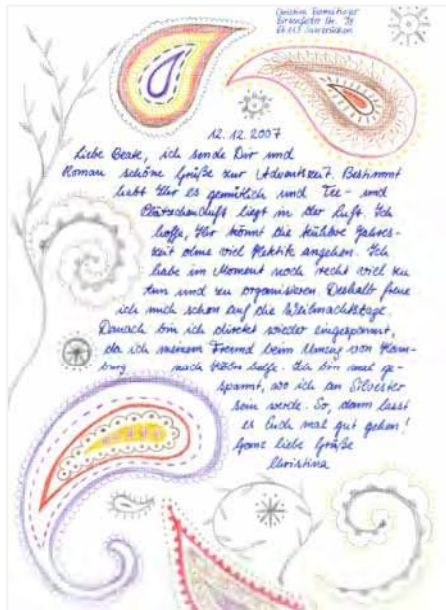 Christina
Str.
12.12.2007
Liebe Beate, ich sende Dir und
Roman schöne Grüße zur Adventszeit. Bestimmt
habt Ihr es gemütlich und Tee- und
Plätzchenduft liegt in der Luft. Ich
hoffe, Ihr könnt die kühlere Jahres-
zeit ohne viel Hektik angehen. Ich
habe im Moment noch recht viel zu
tun und zu organisieren. Deshalb freue
ich mich schon auf die Weihnachtstage.
Danach bin ich direkt wieder eingespannt,
da ich meinem Freund beim Umzug von Ham-
burg nach Köln helfe. Ich bin mal ge-
spannt, wo ich an Silvester
sein werde. So, dann lasst
es Euch mal gut gehen!
Ganz liebe Grüße
Christina